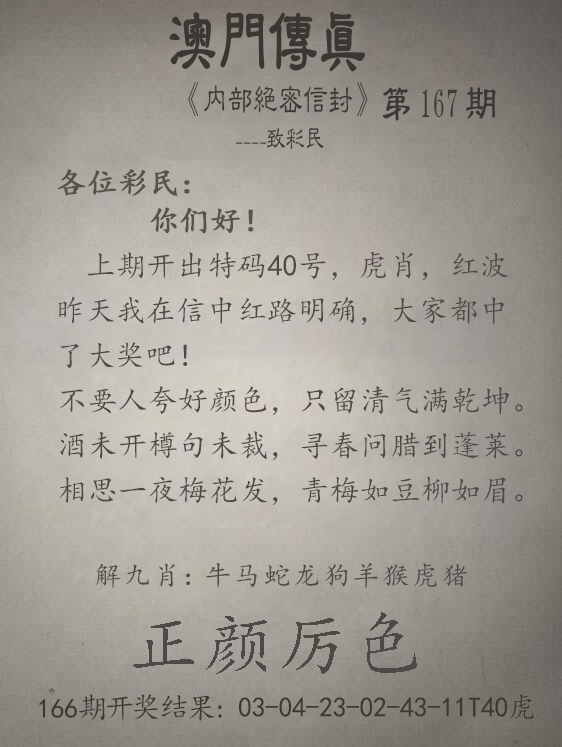 澳門傳眞
《内部絕密信封》第167期
----致彩民
各位彩民：
你们好！
上期开出特码40号，虎肖，红波
昨天我在信中红路明确，大家都中
了大奖吧！
不要人夸好颜色，只留清气满乾坤。
酒未开樽句未裁，寻春问腊到蓬莱。
相思一夜梅花发，青梅如豆柳如眉。
解九肖：牛马蛇龙狗羊猴虎猪
正颜厉色
166期开奖结果：03-04-23-02-43-11T40虎